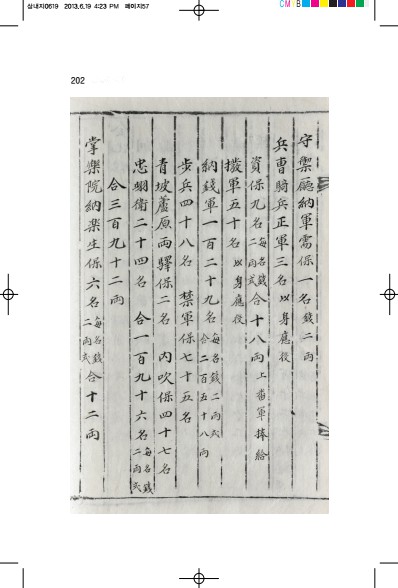 삼내지0619 2013.6.19 4:23 PM 페이지57
CM
202
守禦廳納軍需保一名錢二兩
兵曹騎兵正軍三名以身應役
資保九名每名錢二兩式合十八兩上番軍捧給
撥軍五十名以身應役
納錢軍一百二十九名每名錢二兩式合二百五十八兩
步兵四十八名 禁軍保七十五名
靑坡蘆原両驛保二名 內吹保四十七名
忠翊衛二十四名 合一百九十六名每名錢二両式
合三百九十二両
掌樂院納樂生保六名每名錢二両式合十二両